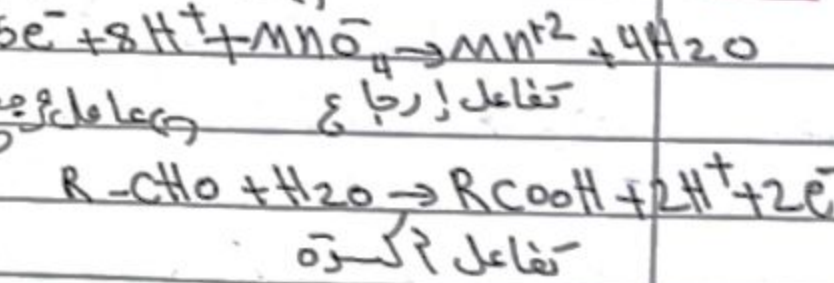 5e⁻ + 8H⁺ + MnO₄⁻ → Mn⁺² + 4H₂O
تفاعل إرجاع
R-CHO + H₂O → RCOOH + 2H⁺ + 2e⁻
تفاعل أكسدة